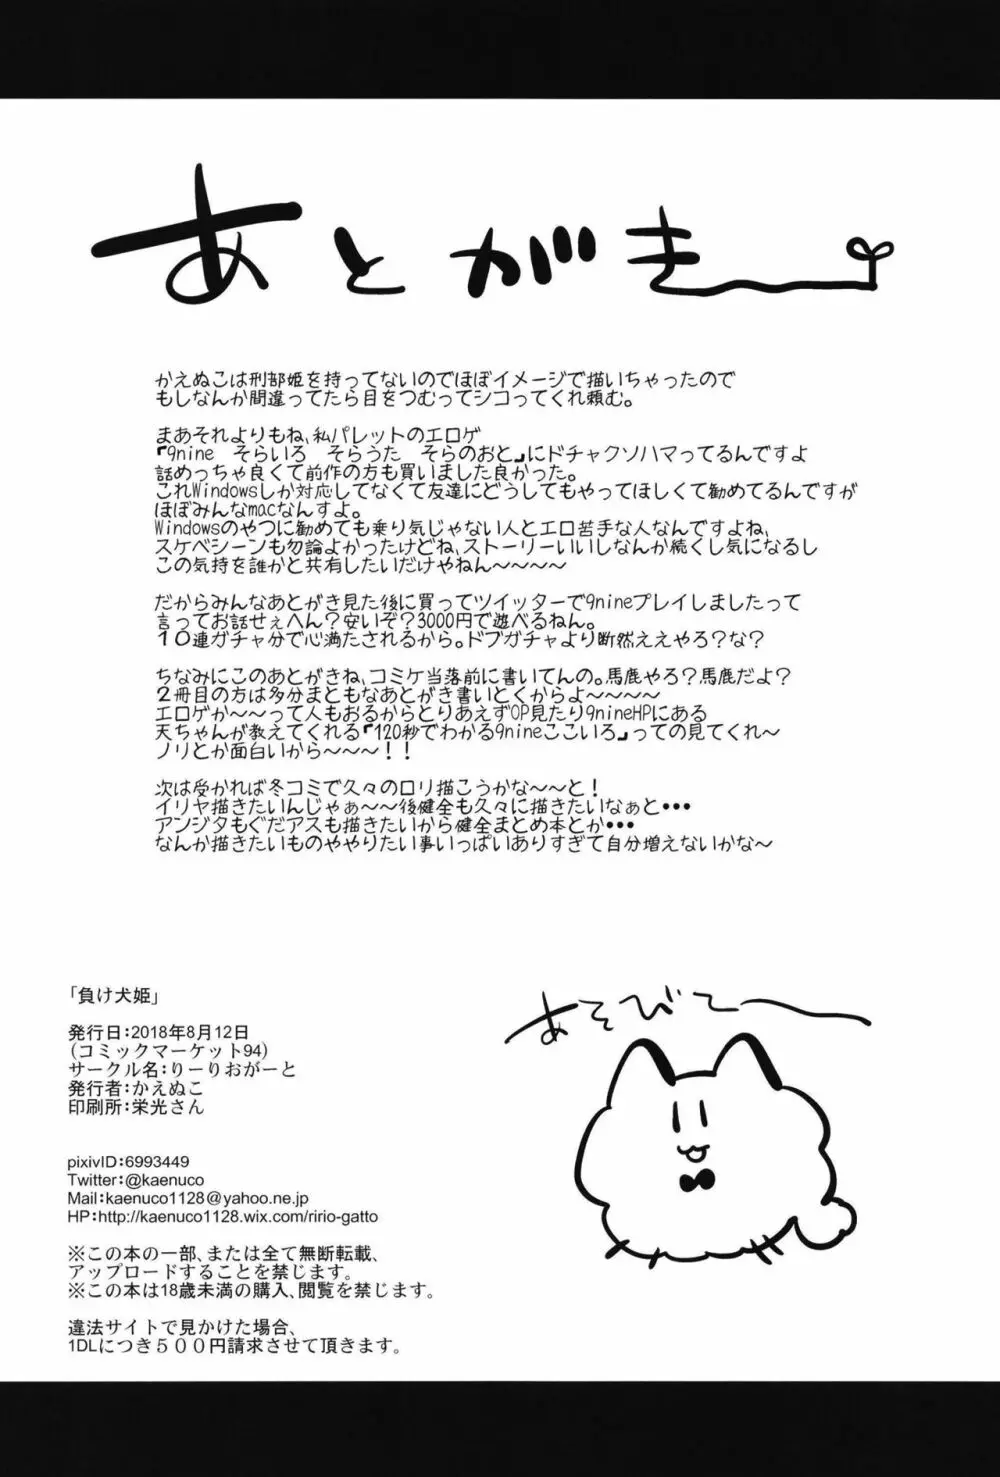 あとがき
かえぬこは刑部姫を持ってないのでほぼイメージで描いちゃったので
もしなんか間違ってたら目をつむってシコってくれ頼む。
まあそれよりもね、私パレットのエロゲ
『9nine そらいろ そらうた そらのおと』にドチャクソハマってるんですよ
話めっちゃ良くて前作の方も買いました良かった。
これWindowsしか対応してなくて友達にどうしてもやってほしくて勧めてるんですが
ほぼみんなmacなんすよ。
Windowsのやつに勧めても乗り気じゃない人とエロ苦手な人なんですよね、
スケベシーンも勿論よかったけどね、ストーリーいいしなんか続くし気になるし
この気持を誰かと共有したいだけやねん～～～～
だからみんなあとがき見た後に買ってツイッターで9nineプレイしましたって
言ってお話せぇへん？安いぞ？3000円で遊べるねん。
１０連ガチャ分で心満たされるから。ドブガチャより断然ええやろ？な？
ちなみにこのあとがきね、コミケ当落前に書いてんの。馬鹿やろ？馬鹿だよ？
２冊目の方は多分まともなあとがき書いとくからよ～～～～
エロゲか～～って人もおるからとりあえずOP見たり9nineHPにある
天ちゃんが教えてくれる『120秒でわかる9nineここいろ』っての見てくれ～
ノリとか面白いから～～～！！
次は受かれば冬コミで久々のロリ描こうかな～～と！
イリヤ描きたいんじゃぁ～～後健全も久々に描きたいなぁと・・・
アンジタもぐだアスも描きたいから健全まとめ本とか・・・
なんか描きたいものややりたい事いっぱいありすぎて自分増えないかな～
「負け犬姫」
発行日：2018年8月12日
（コミックマーケット94）
サークル名：りーりおがーと
発行者：かえぬこ
印刷所：栄光さん
pixivID：6993449
Twitter：@kaenuco
Mail：kaenuco1128@yahoo.ne.jp
HP：http://kaenuco1128.wix.com/ririo-gatto
※この本の一部、または全て無断転載、
アップロードすることを禁じます。
※この本は18歳未満の購入、閲覧を禁じます。
違法サイトで見かけた場合、
1DLにつき５００円請求させて頂きます。
あそびてー